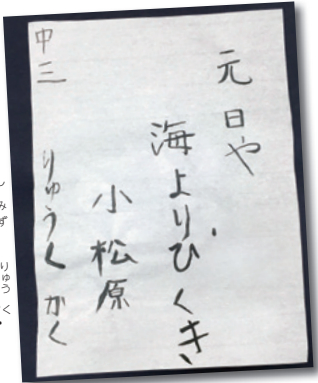 元日や
海よりひくき
小松原
中三 りゅうく かく
みず りゅう く